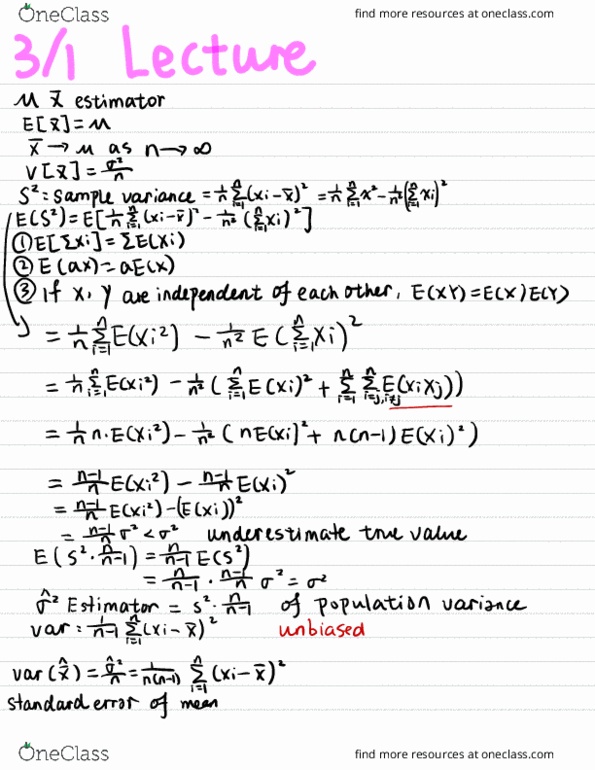 OneClass find more resources at oneclass.com
3/1 Lecture
μ x̄ estimator
E[x̄]=μ
x̄ → μ as n→∞
V[x̄]=σ²/n
S²: Sample variance = 1/n Σ_{i=1}^{n}(xi-x̄)² = 1/n Σ_{i=1}^{n} x² - 1/n²(Σ_{i=1}^{n} xi)²
E(S²)=E[1/n Σ_{i=1}^{n}(xi-x̄)² - 1/n²(Σ_{i=1}^{n}xi)²]
① E[Σxi]=ΣE(xi)
② E(ax)=aE(x)
③ If x, y are independent of each other, E(XY)=E(X)E(Y)
= 1/n Σ_{i=1}^{n} E(xi²) - 1/n² E(Σ_{i=1}^{n} Xi)²
= 1/n Σ_{i=1}^{n} E(xi²) - 1/n² (Σ_{i=1}^{n} E(xi)² + Σ_{i=1}^{n} Σ_{i=j, i≠j}^{n} E(xixj))
= 1/n n·E(xi²) - 1/n² (nE(xi]² + n(n-1)E(xi)²)
= n-1/n E(xi²) - n-1/n E(xi)²
= n-1/n E(xi²)-(E(xi))²
= n-1/n σ² < σ² underestimate true value
E(S²·n/n-1) = n/n-1 E(S²)
= n/n-1 · n-1/n σ² = σ²
σ̂² Estimator = s²·n/n-1 of population variance
var: 1/n-1 Σ_{i=1}^{n}(xi-x̄)² unbiased
var(x̄̂) = σ̂²/n = 1/n(n-1) Σ_{i=1}^{n}(xi-x̄)²
standard error of mean
OneClass find more resources at oneclass.com